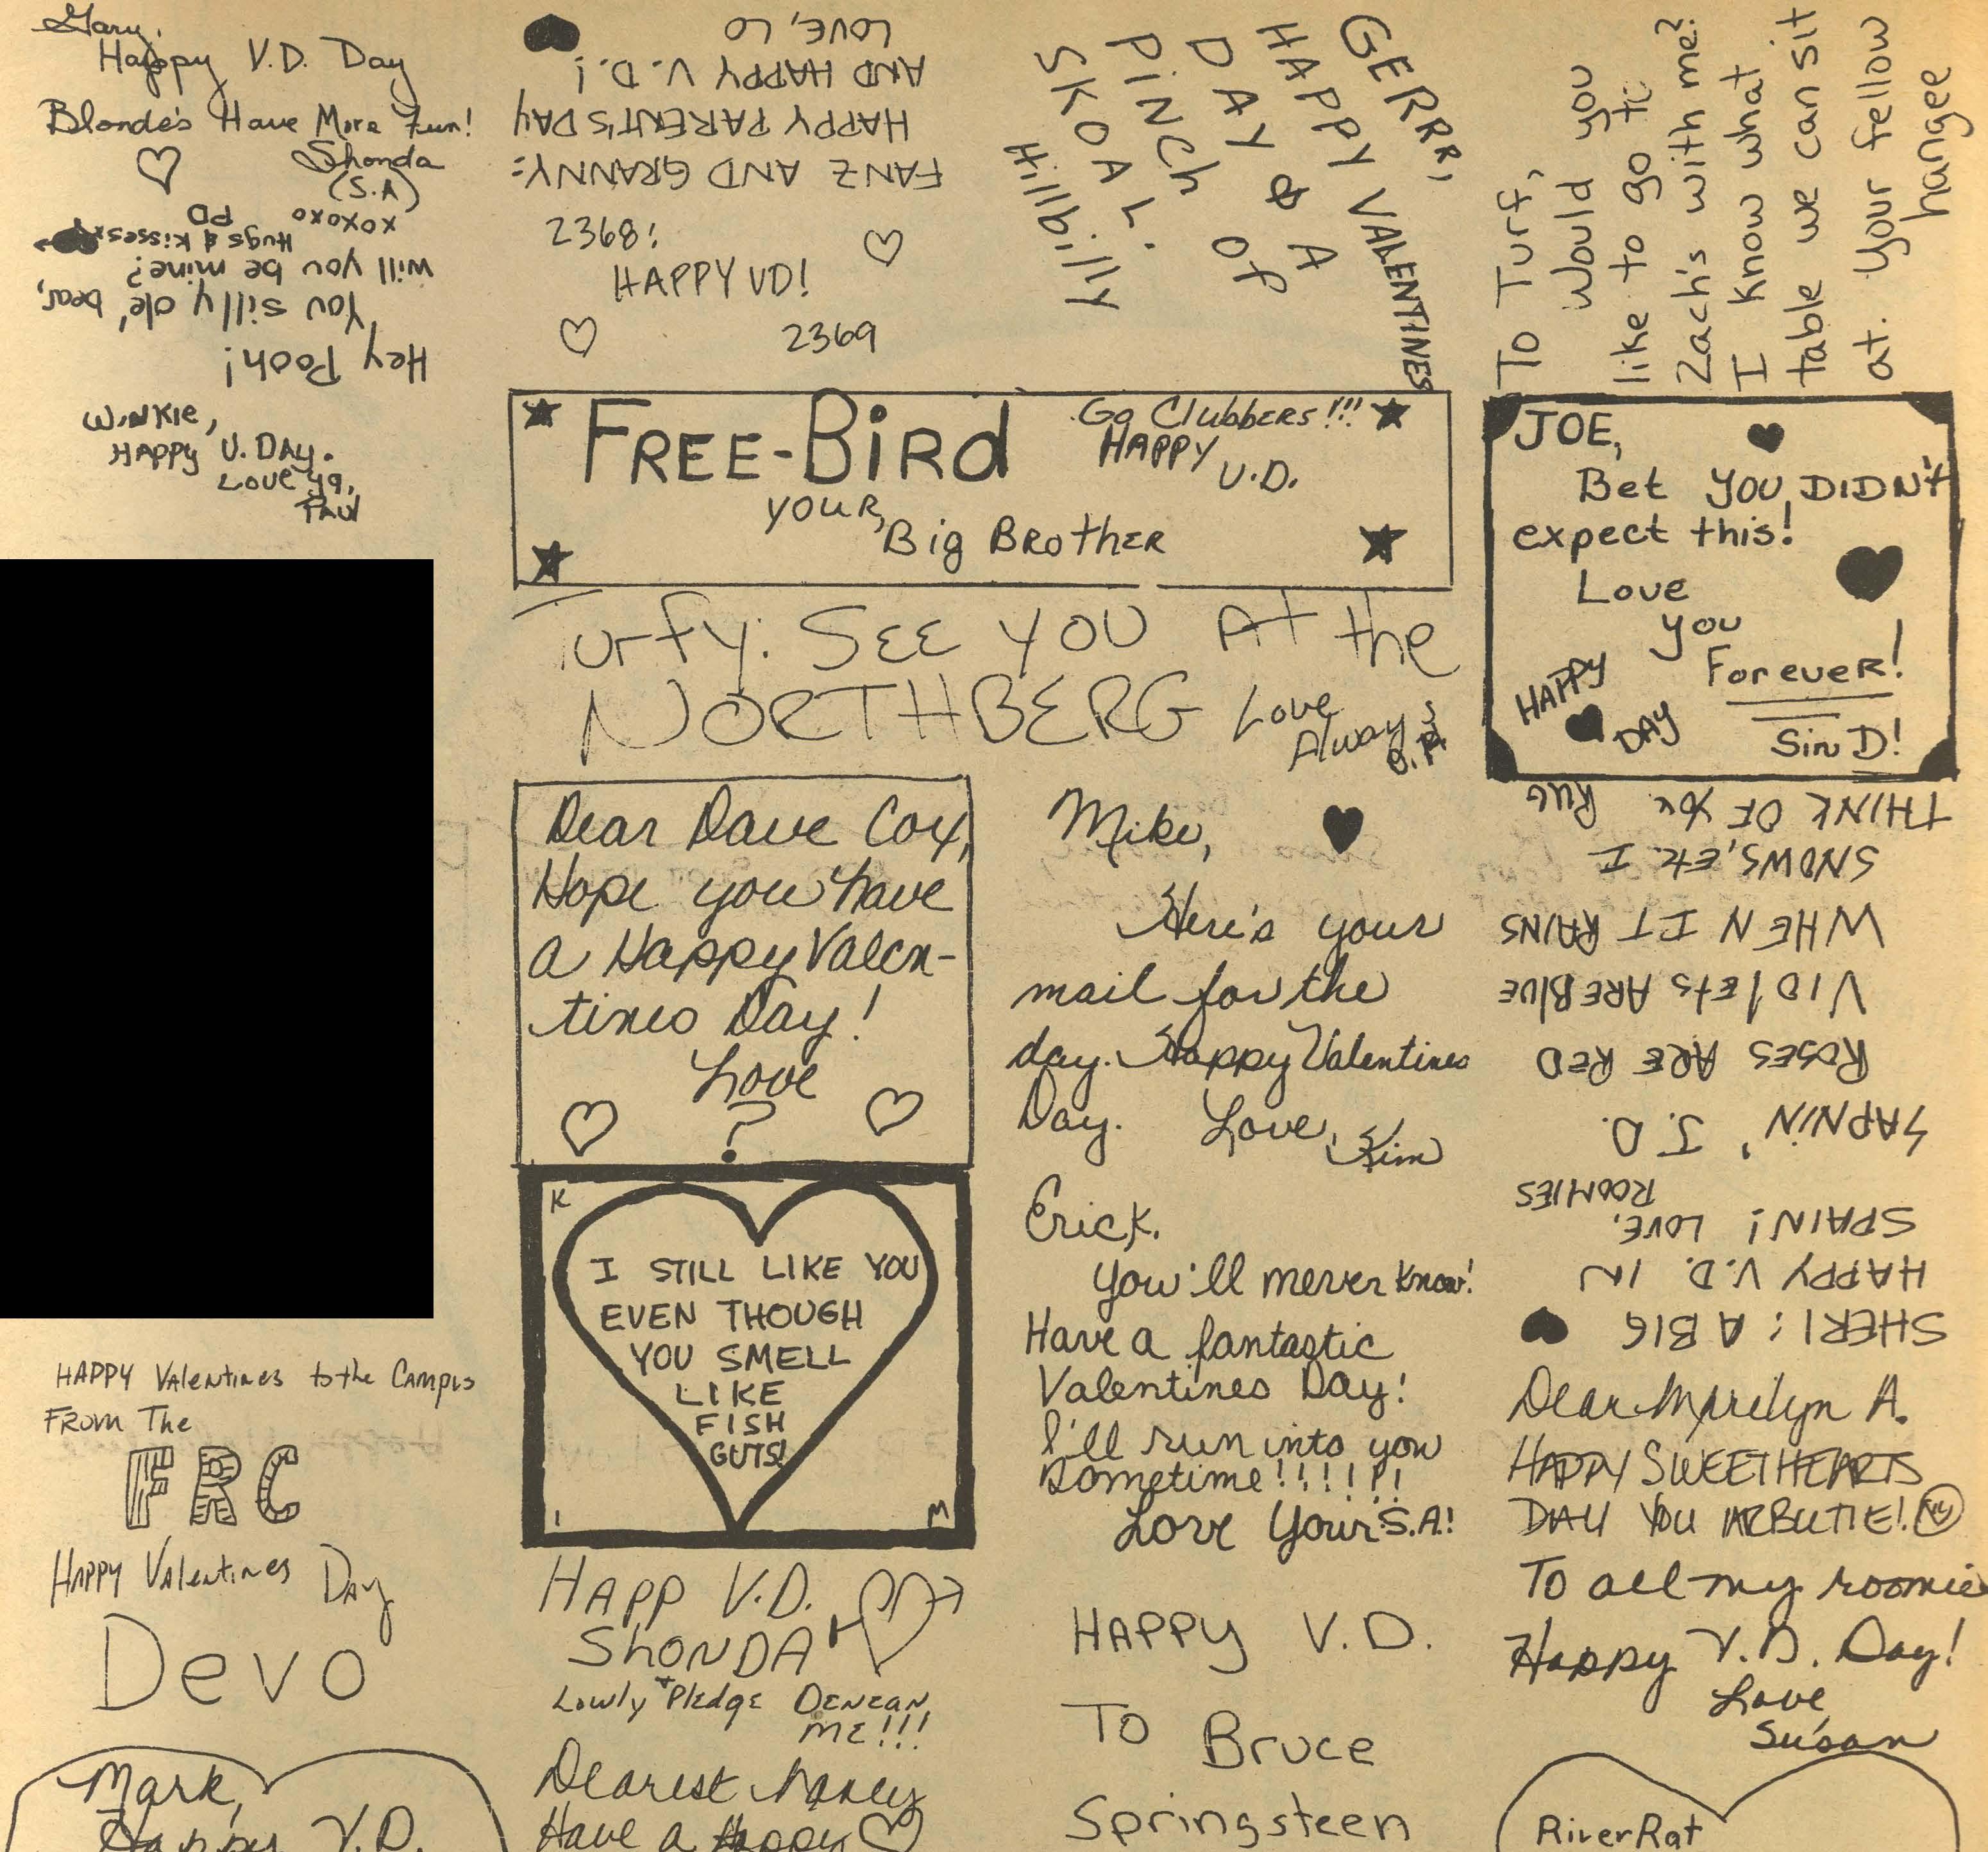 Gary,
Happy V.D. Day
Blonde's Have More Fun!
Shonda
(S.A)
xoxoxo
Hey Pooh!
You silly ole' bear,
will you be mine?
Hugs & Kisses
PD
Winkie,
Happy V. Day.
Love ya,
Paul
HAPPY Valentines to the Campus
From The
FRC
Happy Valentines Day
Devo
Mark,
Happy V.D.
FANZ AND GRANNY:
HAPPY PARENT'S DAY
AND HAPPY V.D.!
LOVE, LO
2368:
HAPPY VD!
2369
GERRI,
HAPPY VALENTINES
DAY & A
PINCH OF
SKOAL.
Hillbilly
To Turf,
Would you
like to go to
Zach's with me?
I know what
table we can sit
at. Your fellow
hangee
FREE-BIRD
Go Clubbers!!!
HAPPY
V.D.
your,
Big Brother
Turfy: SEE YOU At the
NORTHBERG
Love
Always
Dear Dave Cox,
Hope you have
a Happy Valen-
tines Day!
Love
?
K
I STILL LIKE YOU
EVEN THOUGH
YOU SMELL
LIKE
FISH
GUTS!
I
M
HAPP V.D.
SHONDA
Lowly Pledge DENEAN
ME!!!
Dearest Nancy
Have a Happy
Mike,
Here's your
mail for the
day. Happy Valentines
Day. Love, Kim
Erick,
You'll never know!
Have a fantastic
Valentines Day!
I'll run into you
sometime!!!!!!
Love Your S.A!
HAPPY V.D.
To Bruce
Springsteen
JOE,
Bet YOU DIDN't
expect this!
Love
you
Forever!
HAPPY
DAY
Sin D!
SAPNIN', J.D.
ROSES ARE RED
VIOlEts ARE BlUE
WHEN IT RAINS
SNOWS, Etc. I
THINK OF YOU. RUG
SHERI: A BIG
HAPPY V.D. IN
SPAIN! LOVE,
ROOMIES
Dear Marilyn A.
HAPPY SWEETHEARTS
DAY YOU ARBUTIE!
To all my roomie
Happy V.D. Day!
Love
Susan
RiverRat